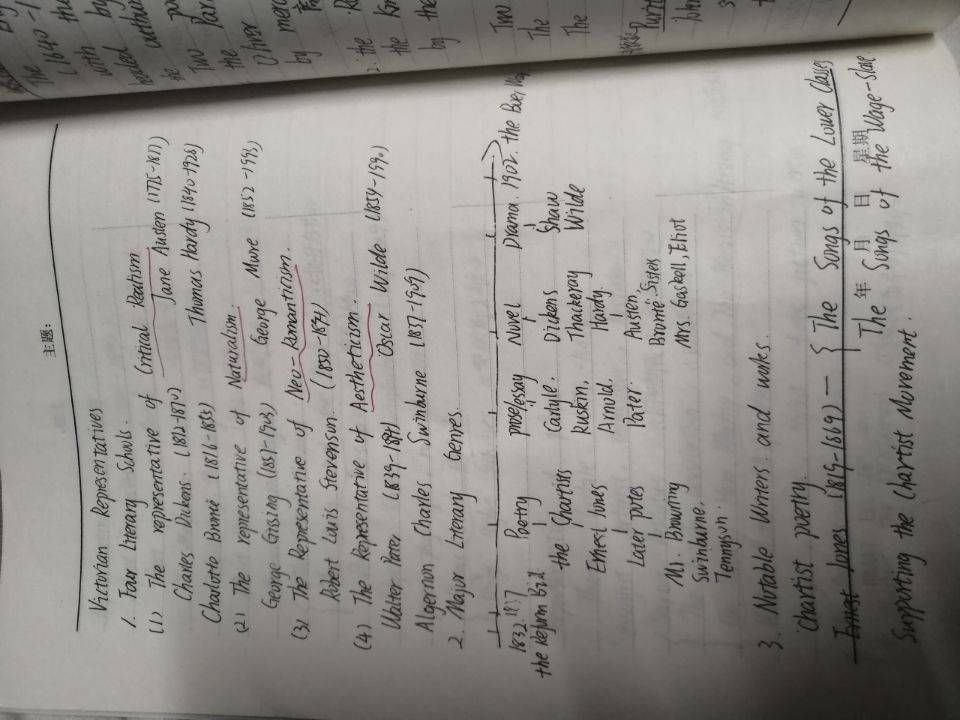 主题:
Victorian Representatives
1. Four Literary Schools.
(1) The representative of Critical Realism
Charles Dickens. (1812-1870) Jane Austen (1775-1817)
Charlotte Bronë (1816-1855) Thomas Hardy (1840-1928)
(2) The representative of Naturalism.
George Gissing (1857-1903) George Mure (1852-1993)
(3) The Representative of Neo-Romanticism.
Robert Luis Stevenson. (1850-1894)
(4) The Representative of Aestheticism.
Walter Pater (1839-1894) Oscar Wilde (1854-1990)
Algernon Charles Swinburne (1837-1909)
2. Major Literary Genres.
1832. 1837 Poetry prose/essay Novel Drama. 1902. the Boer War
the Reform Bill the Chartists Carlyle. Dickens Shaw
Ernest Jones Ruskin. Thackeray Wilde
Arnold. Hardy.
Later potes Pater. Austen
Bronte Sisters
Mr. Browning Mrs. Gaskell, Eliot
Swinburne.
Tennyson.
3. Notable Writers. and works.
Chartist poetry.
Ernest Jones (1819-1869) — { The Songs of the Lower Classes
年 月 日 星期
The Songs of the Wage-Slave
Supporting the Chartist Movement.